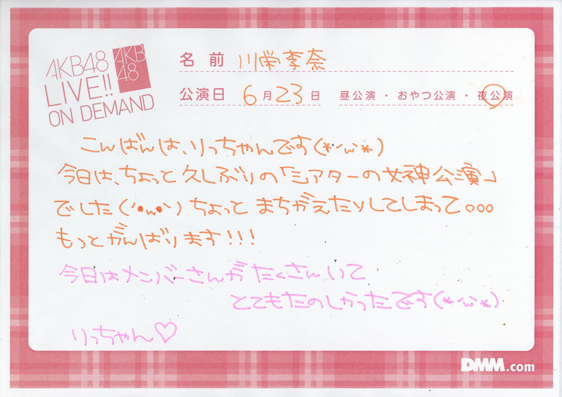 AKB48
LIVE!!
ON DEMAND
AKB
48
名前 川栄李奈
公演日 6月23日 昼公演・おやつ公演・夜公演
こんばんは、りっちゃんです(*´ω`*)
今日は、ちょっと久しぶりの「シアターの女神公演」
でした(´・ω・`)ちょっとまちがえたりしてしまって。。。
もっとがんばります!!!
今日はメンバーさんがたくさんいて
とてもたのしかったです(*´ω`*)
りっちゃん♡
DMM.com